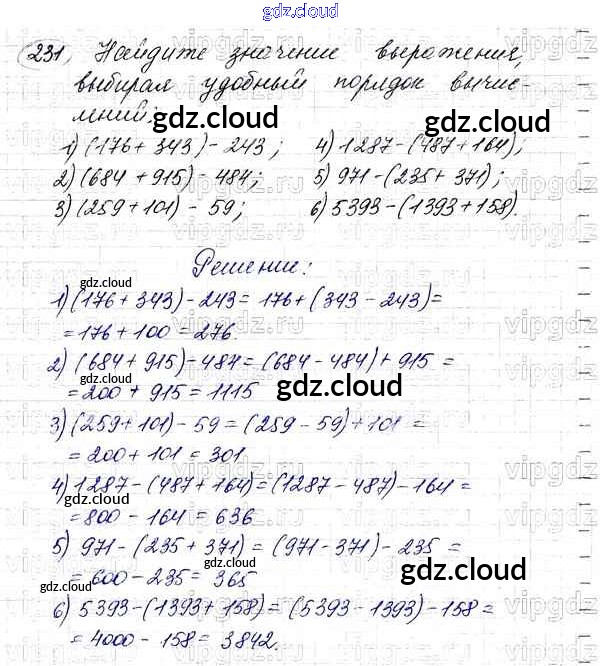 gdz.cloud
231, Найдите значение выражения,
выбирая удобный порядок вычис-
лений:
gdz.cloud
gdz.cloud
1) (176 + 343) - 243; 4) 1287 - (487 + 164);
2) (684 + 915) - 484; 5) 971 - (235 + 371);
3) (259 + 101) - 59; 6) 5393 - (1393 + 158).
Решение:
gdz.cloud
1) (176 + 343) - 243 = 176 + (343 - 243) =
= 176 + 100 = 276.
2) (684 + 915) - 484 = (684 - 484) + 915 =
gdz.cloud
= 200 + 915 = 1115
gdz.cloud
3) (259 + 101) - 59 = (259 - 59) + 101 =
= 200 + 101 = 301
4) 1287 - (487 + 164) = (1287 - 487) - 164 =
gdz.cloud
= 800 - 164 = 636
5) 971 - (235 + 371) = (971 - 371) - 235 =
gdz.cloud
= 600 - 235 = 365
gdz.cloud
6) 5393 - (1393 + 158) = (5393 - 1393) - 158 =
= 4000 - 158 = 3842.